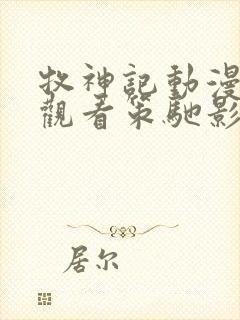 牧神記動漫
觀看策馳影
居尔